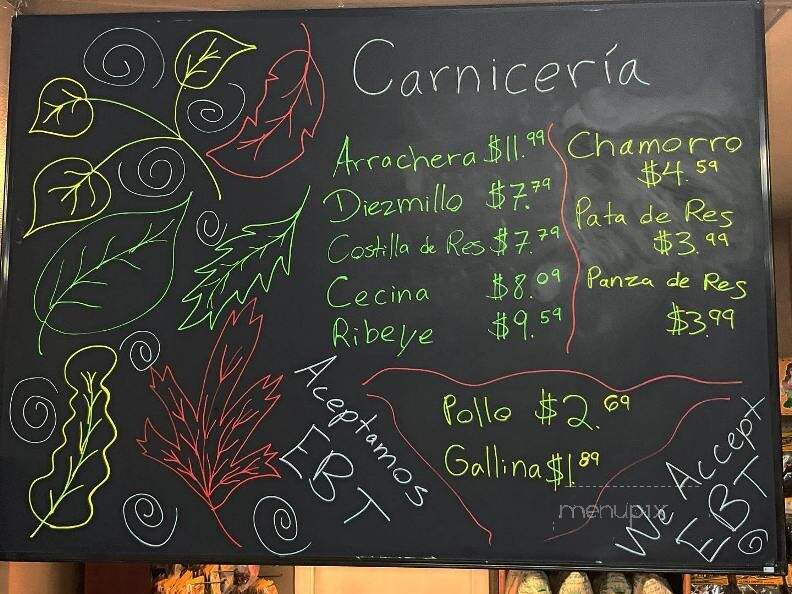 Carnicería
Arrachera $11.99
Diezmillo $7.79
Costilla de Res $7.79
Cecina $8.09
Ribeye $9.59
Chamorro
$4.59
Pata de Res
$3.99
Panza de Res
$3.99
Pollo $2.69
Gallina $1.89
Aceptamos
EBT
We Accept
EBT
menupix